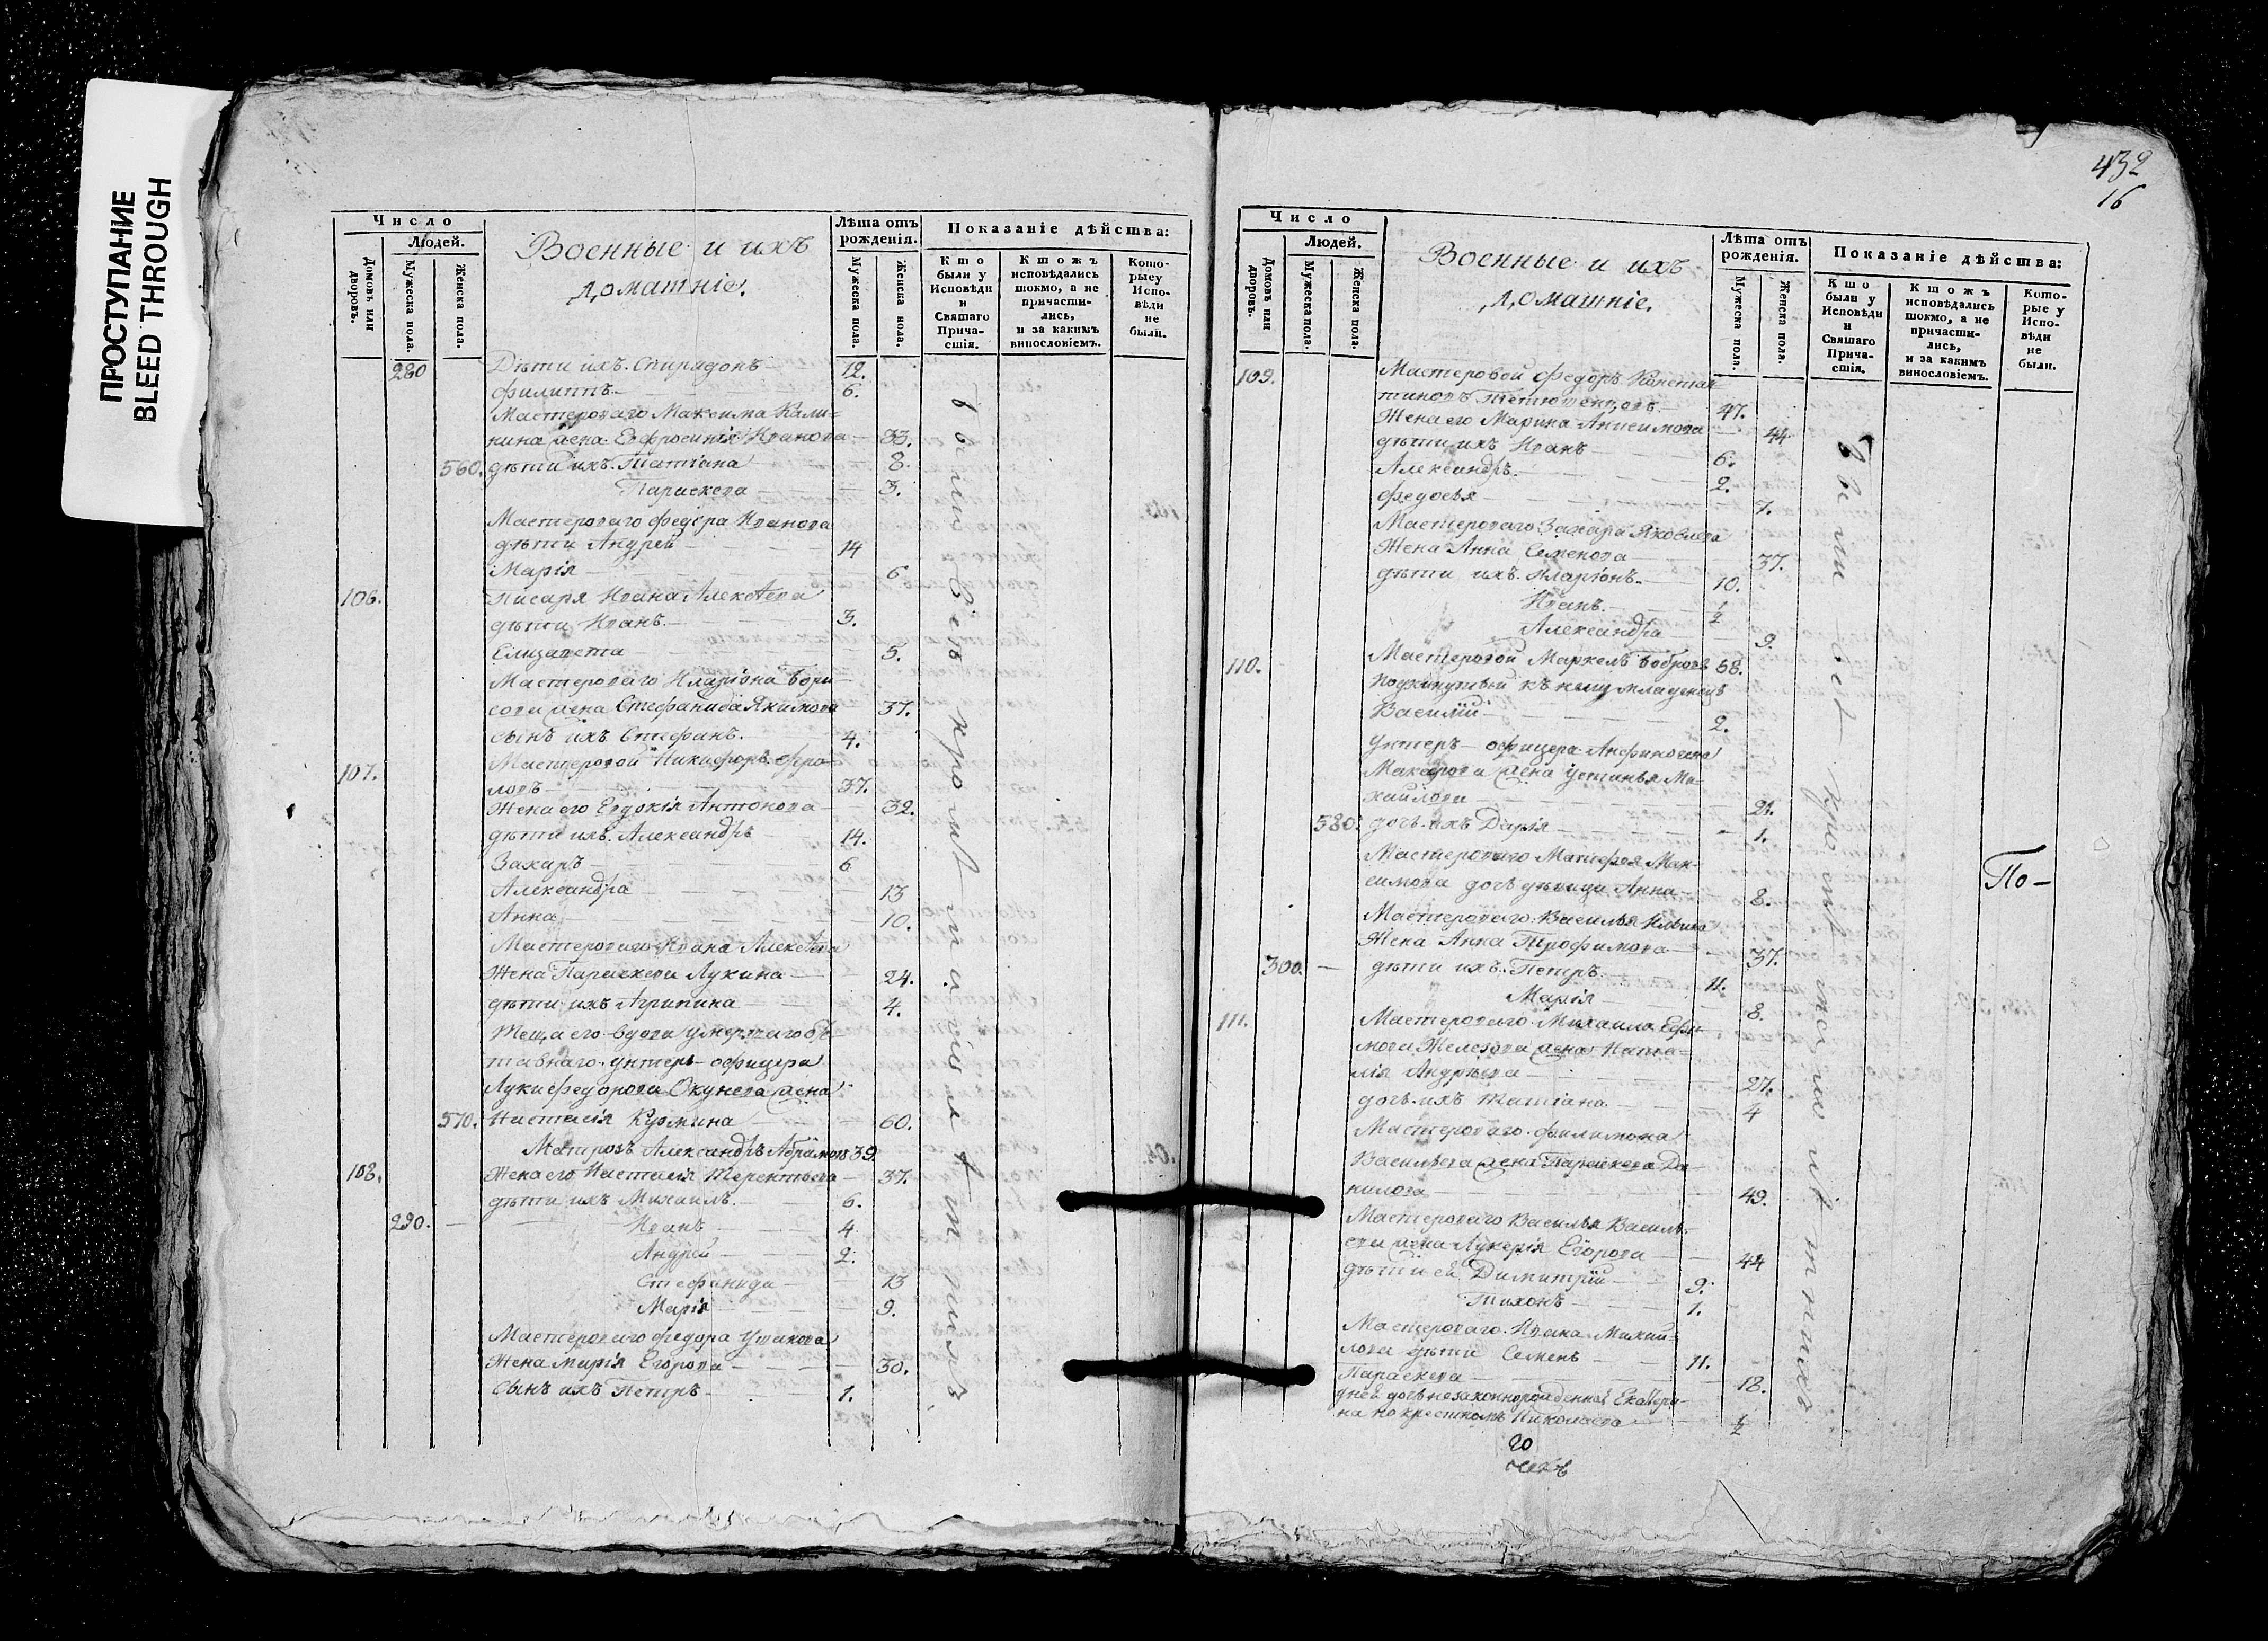 ПРОСТУПАНИЕ
BLEED THROUGH
Число
Людей.
Домовъ или дворовъ.
Мужеска пола.
Женска пола.
Военные и ихъ
домашніе.
Лѣта отъ рожденія.
Мужеска пола.
Женска пола.
Показаніе дѣйства:
Кто были у Исповѣди и Святаго Причастія.
Ктожъ исповѣдались токмо, а не причастились, и за какимъ винословіемъ.
Которые у Исповѣди не были.
280 Дѣти ихъ Спиридонъ 12.
Филиппъ 6.
Мастероваго Максима Кали-
нина жена Евфросинія Иванова 33.
560. дѣти ихъ Татіана 8.
Параскева 3.
Мастероваго Федора Иванова
дѣти Андрей 14
Марія 6
106. Писаря Ивана Алексѣева
дѣти Иванъ 3.
Елизавета 5.
Мастероваго Иларіона Бори-
сова жена Стефанида Якимова 37.
сынъ ихъ Стефанъ. 4.
107. Мастеровой Никифоръ Фро-
ловъ 37.
Жена его Евдокія Антонова 32.
дѣти ихъ Александръ 14.
Захаръ 6
Александра 13
Анна 10.
Мастероваго Ивана Алексѣева
Жена Параскева Лукина 24.
дѣти ихъ Агрипина 4.
Теща его вдова умершаго
унтеръ-офицера
Луки Федорова Окунева жена
570. Настасія Кузмина 60.
108. Матрозъ Александръ Абрамовъ 39.
Жена его Настасія Терентьева 37.
дѣти ихъ Михаилъ 6.
290. Иванъ 4
Андрей 2.
Стефанида 13
Марія 9.
Мастероваго Федора Ушакова
Жена Марія Егорова 30.
Сынъ ихъ Петръ 1.
были всѣ кромѣ
432
16
Число
Людей.
Домовъ или дворовъ.
Мужеска пола.
Женска пола.
Военные и ихъ
домашніе.
Лѣта отъ рожденія.
Мужеска пола.
Женска пола.
Показаніе дѣйства:
Кто были у Исповѣди и Святаго Причастія.
Ктожъ исповѣдались токмо, а не причастились, и за какимъ винословіемъ.
Которые у Исповѣди не были.
109. Мастеровой Федоръ Констан-
тиновъ 47.
Жена его Марина Анисимова 44
дѣти ихъ Иванъ 6.
Александръ 2.
Федосья 7.
Мастероваго Захара Яковлева
Жена Анна Семенова 37.
дѣти ихъ Иларіонъ 10.
Иванъ 1/2
Александра 9.
110. Мастеровой Маркелъ Бобровъ 58.
Подкинутый къ нему младенецъ
Василій 2.
Унтеръ-офицера
Макарова жена Устинья Ми-
хайлова 21.
580. дочь ихъ Дарія 1.
Мастероваго Матфея Мак-
симова дочь дѣвица Анна 8.
Мастероваго Василья
Жена Анна Трофимова 37.
300. дѣти ихъ Петръ 11.
Марія 8.
111. Мастероваго Михаила Ефи-
мова жена Ната-
лія Андрѣева 27.
дочь ихъ Татіана 4
Мастероваго Филимона
Васильева жена Параскева Да-
нилова 49.
Мастероваго Василья Василь-
ева жена Лукерія Егорова 44
дѣти ея Димитрій 9.
Тихонъ 1.
Мастероваго Ивана Михай-
лова дѣти Семенъ 11.
Параскева 18.
у ней дочь незаконнорожденная Екатери-
на по крестномъ Николаева 1/2
были всѣ кромѣ малолѣтнихъ
По-
20